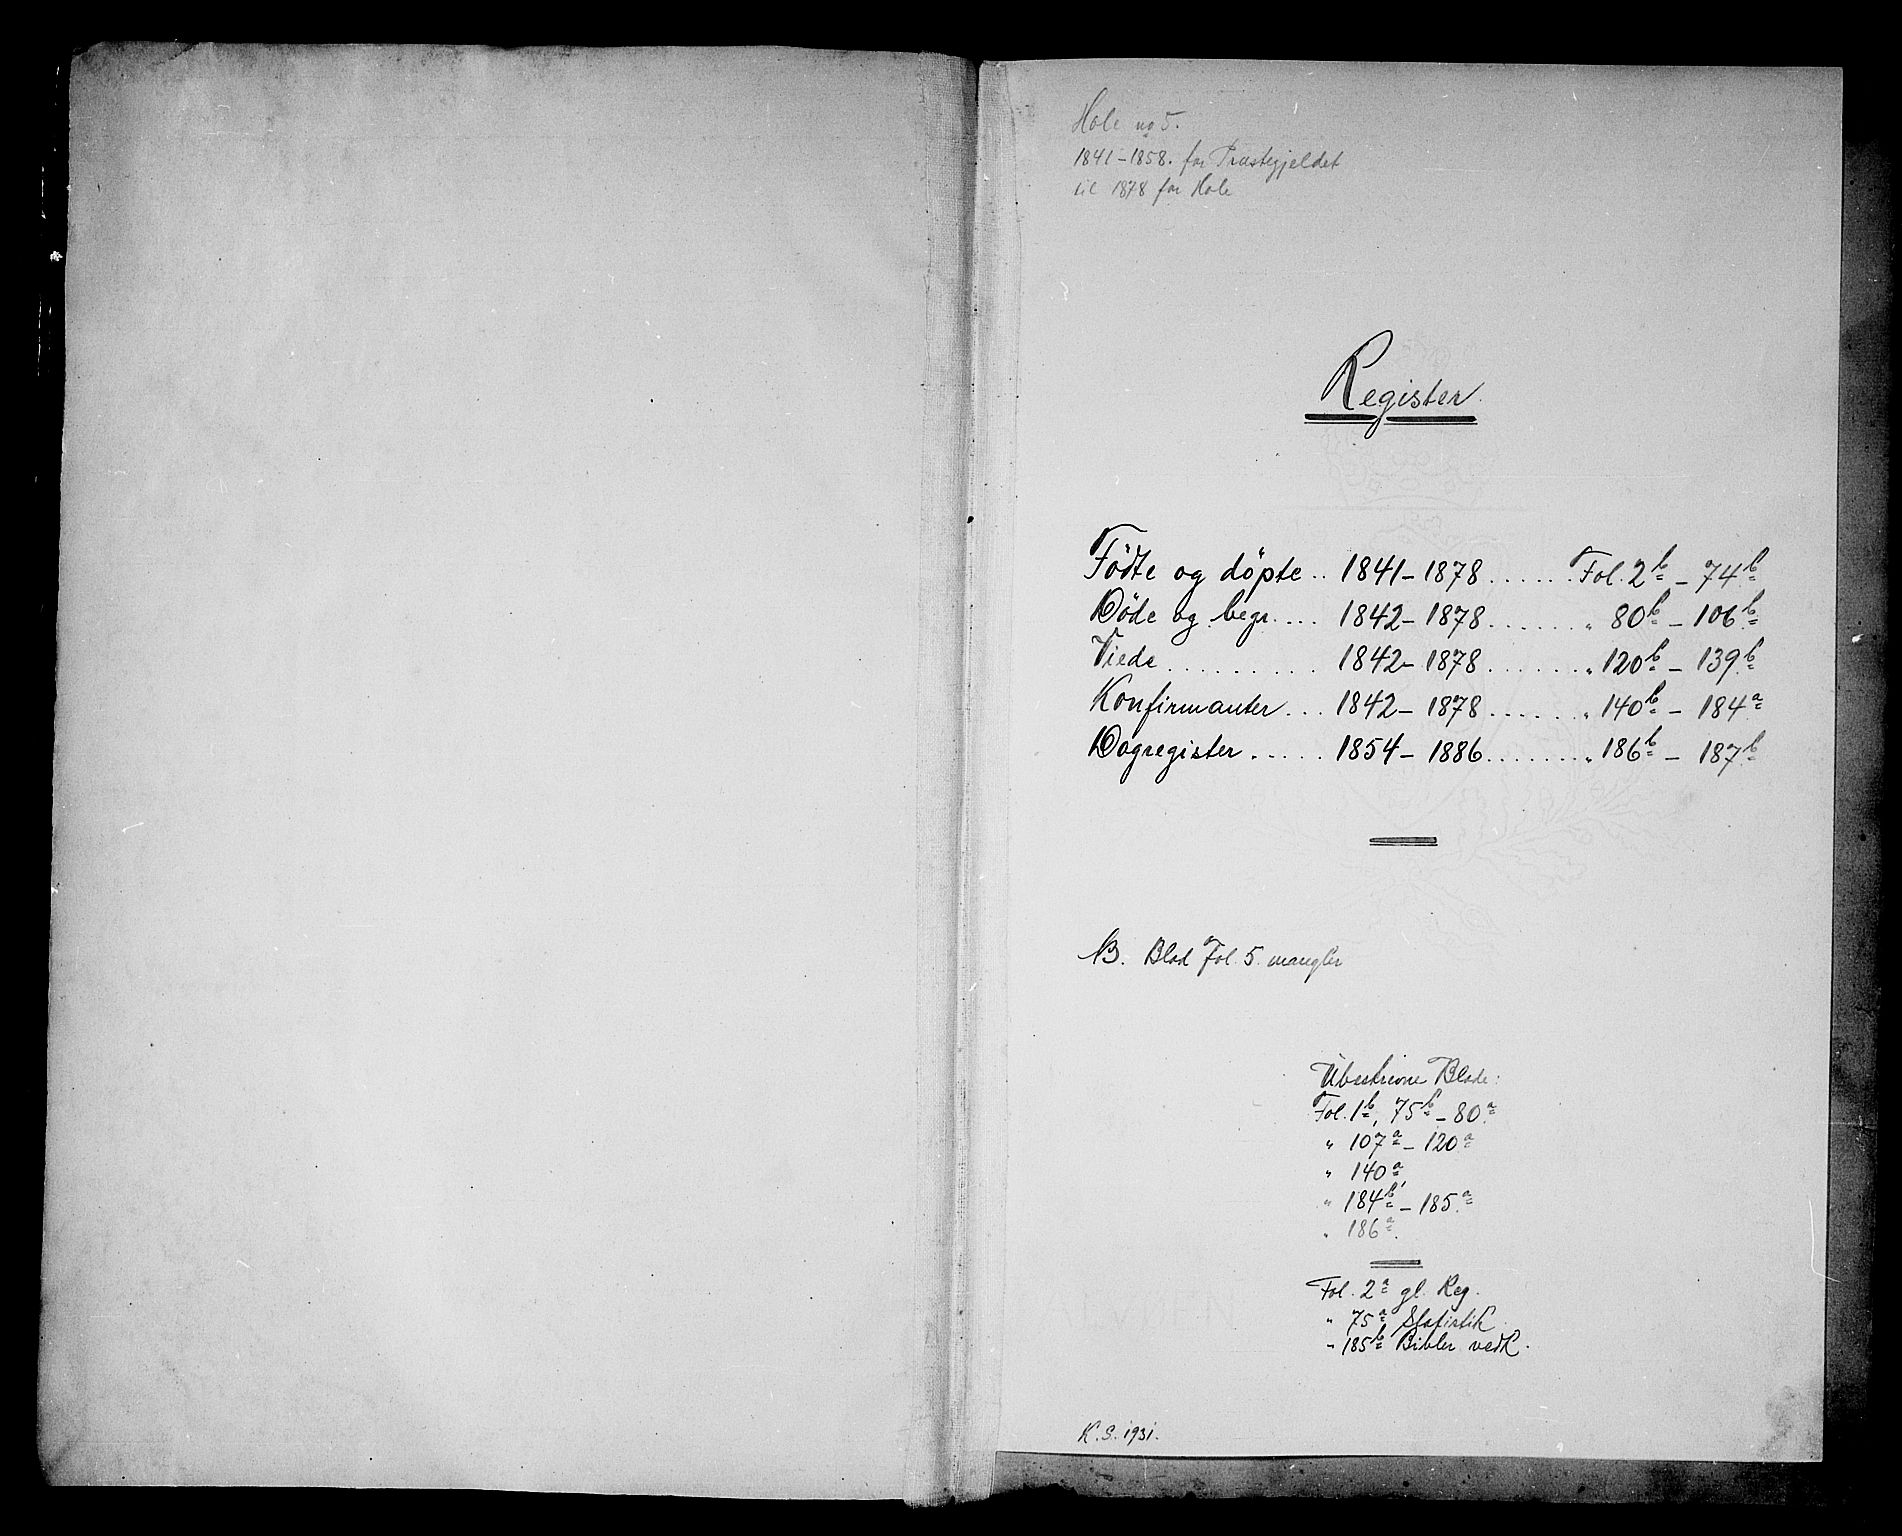 Hole no 5.
1841-1858. for Præstegjeldet
til 1878 for Hole
Register
Födte og döpte .. 1841-1878 ...... Fol. 2b - 74b
Döde og begr. ... 1842-1878 ...... " 80b - 106b
Viede .......... 1842-1878 ...... " 120b - 139b
Konfirmanter ... 1842-1878 ...... " 140b - 184a
Dagregister ..... 1854-1886 ...... " 186b - 187b
NB. Blad Fol. 5 mangler
Ubeskrevne Blade:
Fol. 1b, 75b - 80a
" 107a - 120a
" 140a
" 184b - 185a
" 186a.
Fol. 2a gl. Reg.
" 75a Statistik
" 185b Bibler vedk.
K.S. 1931.